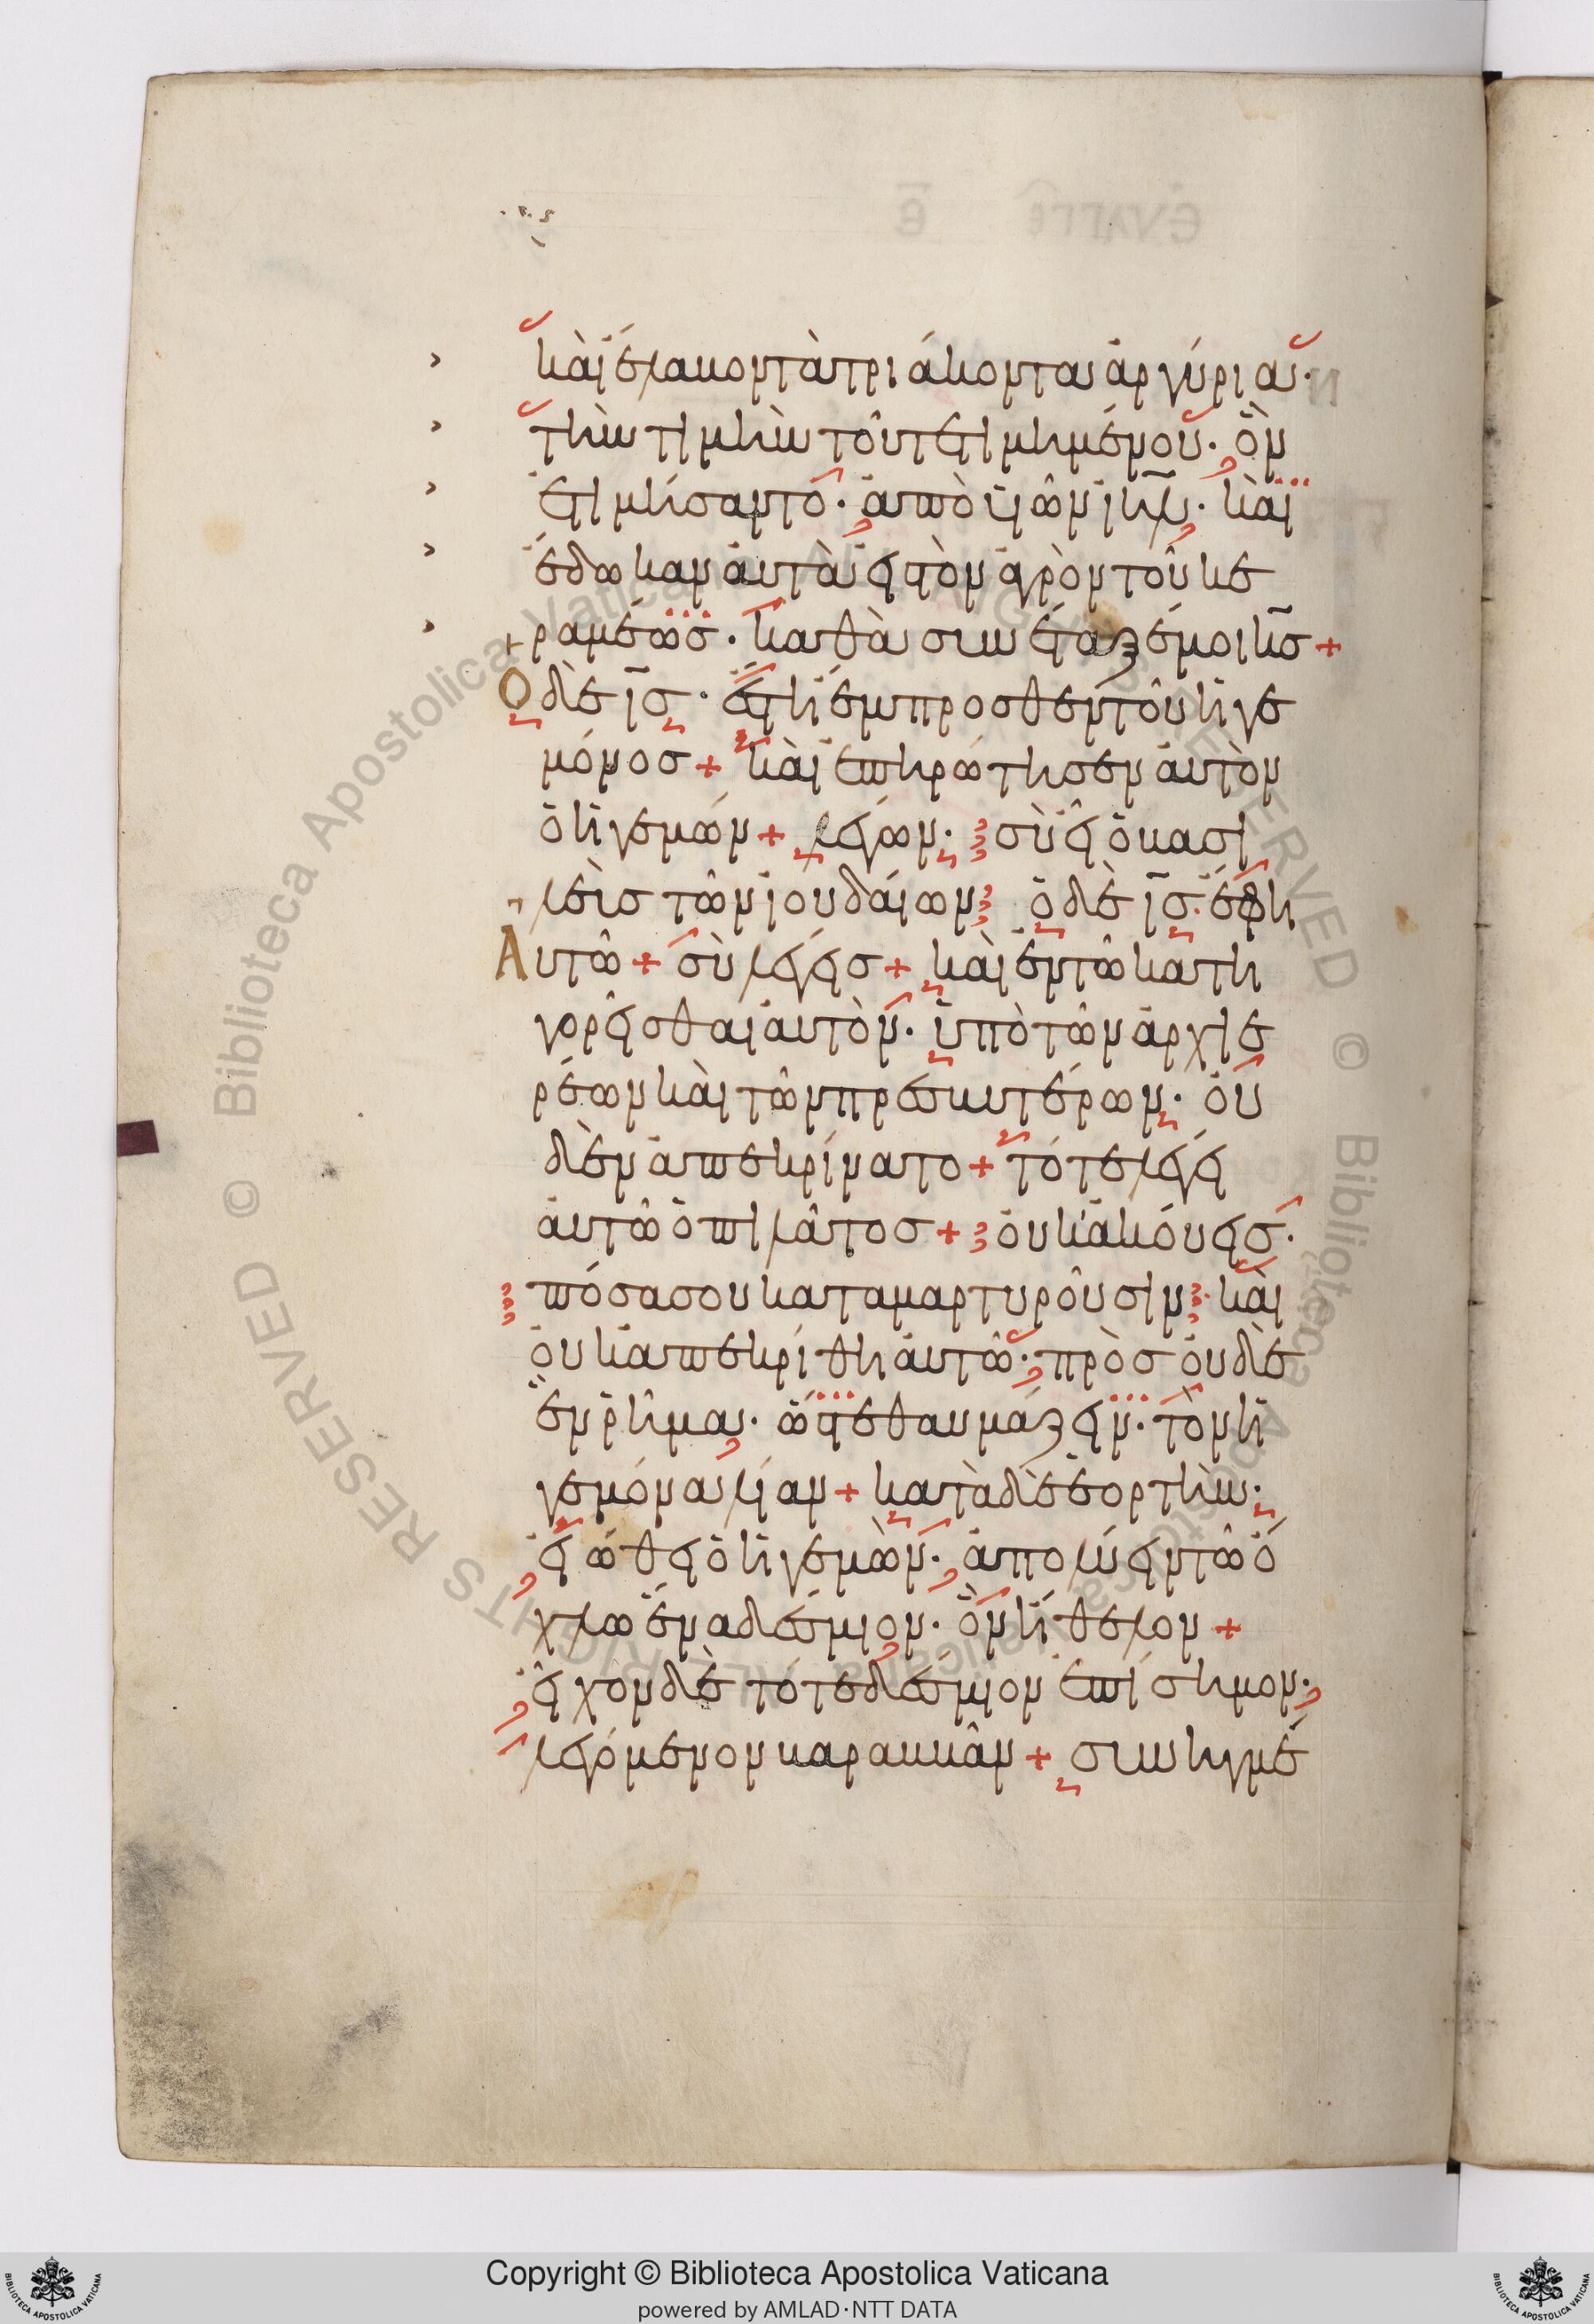 καὶ ἔλαβον τὰ τριάκοντα ἀργύρια·
τὴν τιμὴν τοῦ τετιμημένου· ὃν
ἐτιμήσαντο· ἀπὸ υἱῶν ιηλ· καὶ
ἔδωκαν αὐτὰ εἰς τὸν ἀγρὸν τοῦ κε
ραμέως· καθὰ συνέταξέ μοι κσ +
Ὁ δὲ ισ· ἔστη ἔμπροσθεν τοῦ ἡγε
μόνος + καὶ ἐπηρώτησεν αὐτὸν
ὁ ἡγεμών + λέγων· σὺ εἶ ὁ βασι
λεὺς τῶν ἰουδαίων ὁ δὲ ισ· ἔφη
Αὐτῶ + σὺ λέγεις + καὶ ἐν τῶ κατη
γορεῖσθαι αὐτὸν· ὑπὸ τῶν ἀρχιε
ρέων καὶ τῶν πρεσβυτέρων· οὐ
δὲν ἀπεκρίνατο + τότε λέγει
αὐτῶ ὁ πιλᾶτος + οὐκ ἀκούεις·
πόσα σου καταμαρτυροῦσιν· καὶ
οὐκ ἀπεκρίθη αὐτῶ· πρὸς οὐδὲ
ἓν ῥῆμα· ὥστε θαυμάζειν· τὸν ἡ
γεμόνα λίαν + κατὰ δὲ ἑορτὴν·
εἰώθει ὁ ἡγεμὼν· ἀπολύειν τῶ ὄ
χλω ἕνα δέσμιον· ὃν ἤθελον +
εἶχον δὲ τότε δέσμιον ἐπίσημον·
λεγόμενον βαραββᾶν + συνηγμέ
Copyright © Biblioteca Apostolica Vaticana
powered by AMLAD·NTT DATA